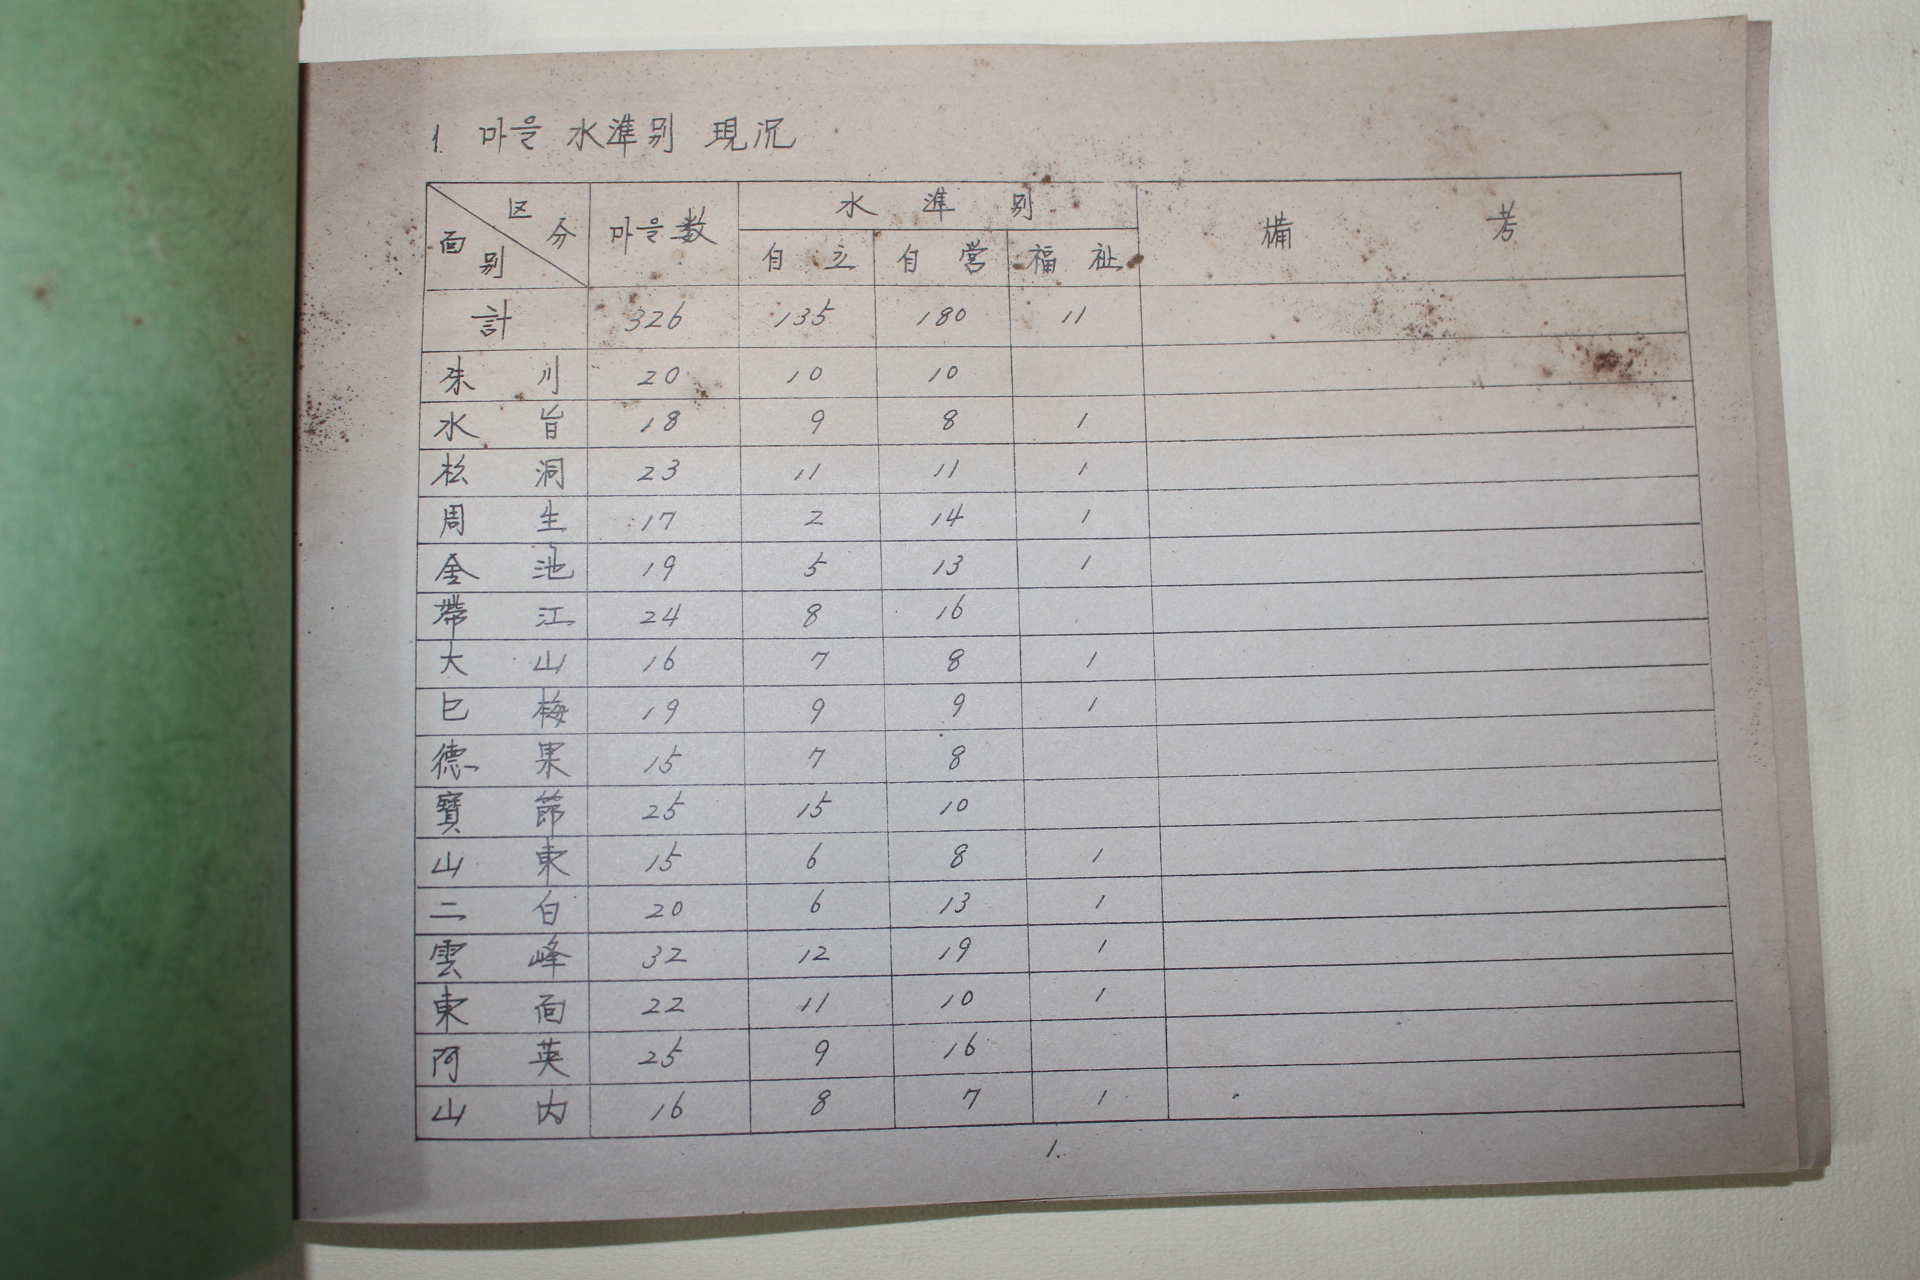 1. 마을 水準別 現況
区分 面別 마을数 水準別 備考
自立 自営 福祉
計 326 135 180 11
朱川 20 10 10
水旨 18 9 8 1
松洞 23 11 11 1
周生 17 2 14 1
金池 19 5 13 1
帶江 24 8 16
大山 16 7 8 1
巳梅 19 9 9 1
德果 15 7 8
寶節 25 15 10
山東 15 6 8 1
二白 20 6 13 1
雲峰 32 12 19 1
東面 22 11 10 1
阿英 25 9 16
山内 16 8 7 1
1.